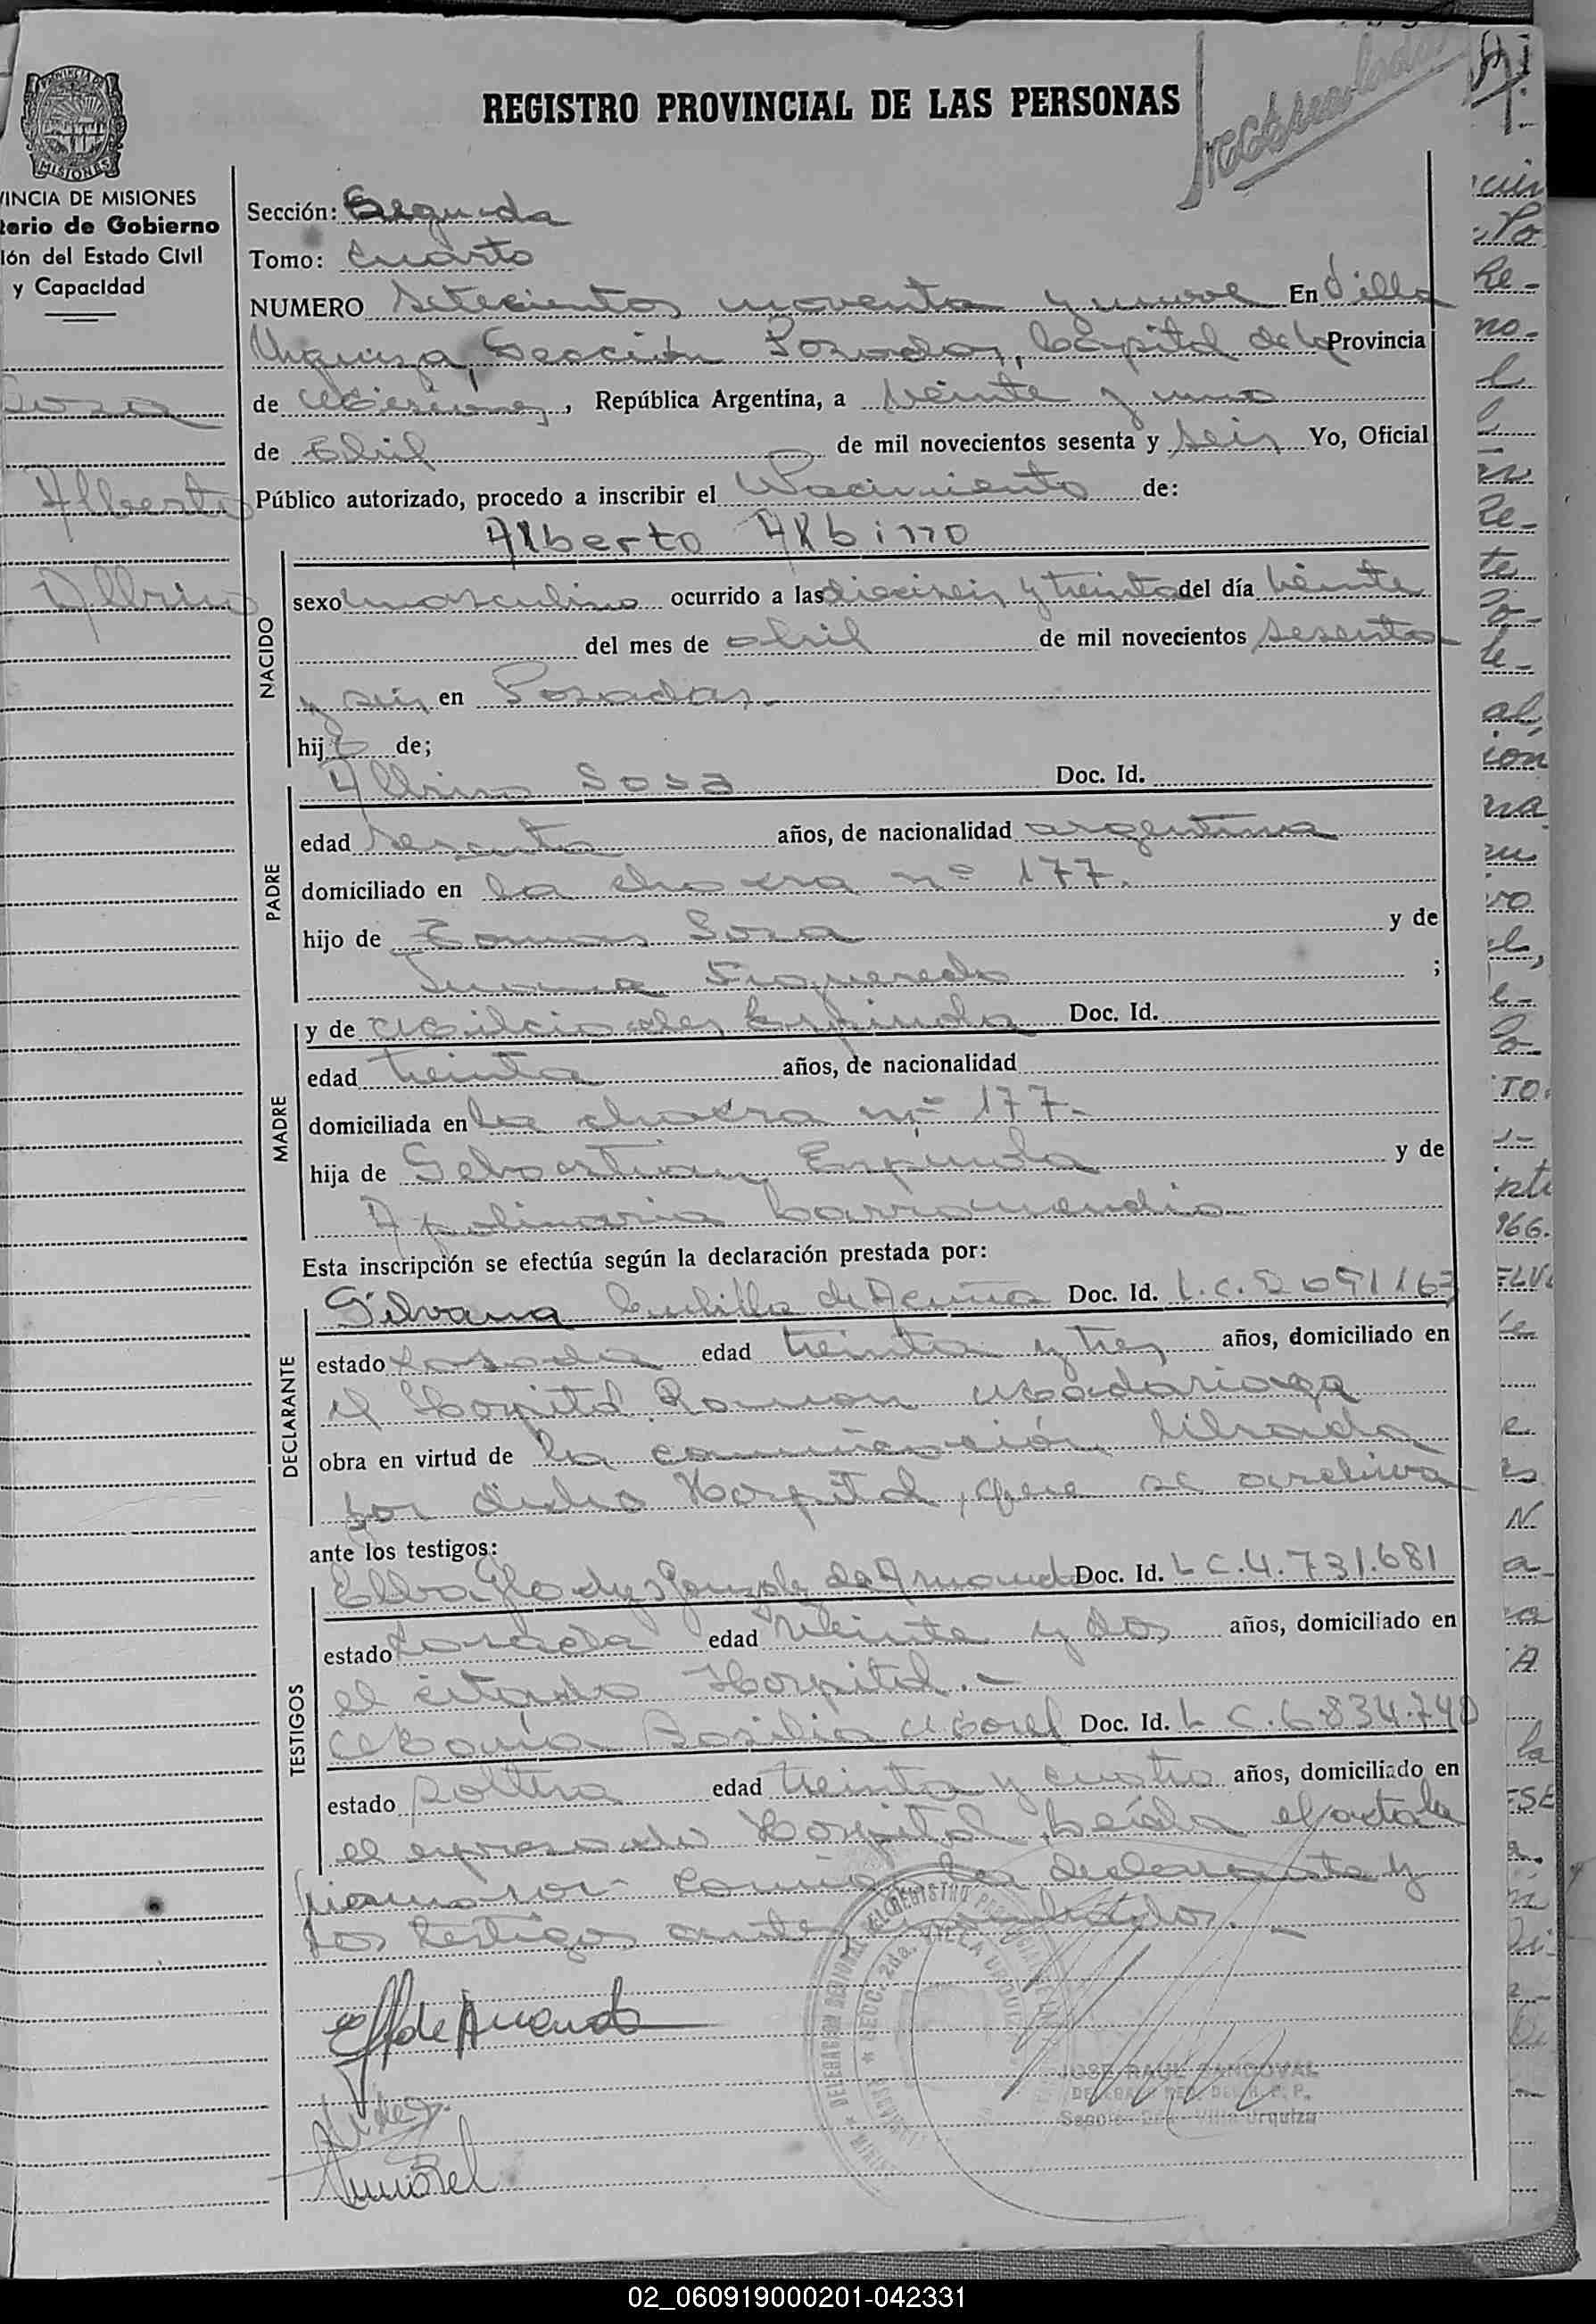 REGISTRO PROVINCIAL DE LAS PERSONAS
MISIONES
VINCIA DE MISIONES
terio de Gobierno
ión del Estado Civil
y Capacidad
Sosa
Alberto
Albino
Sección: Segunda
Tomo: Cuarto
NUMERO Setecientos noventa y nueve En Villa
Urquiza, Sección Posadas, Capital de la Provincia
de Misiones, República Argentina, a veinte y uno
de Abril de mil novecientos sesenta y seis Yo, Oficial
Público autorizado, procedo a inscribir el Nacimiento de:
Alberto Albino
NACIDO
sexo masculino ocurrido a las dieciseis y treinta del día veinte
del mes de abril de mil novecientos sesenta
y seis en Posadas.-
hijo de;
PADRE
Albino Sosa Doc. Id.
edad sesenta años, de nacionalidad argentina
domiciliado en la chacra nº 177.
hijo de Tomas Sosa y de
Juana Figueredo ;
MADRE
y de Espindola Doc. Id.
edad treinta años, de nacionalidad
domiciliada en la chacra nº 177.-
hija de Sebastian Espindola y de
Apolinaria
Esta inscripción se efectúa según la declaración prestada por:
DECLARANTE
Silvana de Acuña Doc. Id. L.C. 2091163
estado casada edad treinta y tres años, domiciliado en
el Hospital Ramon Madariaga
obra en virtud de la comunicación librada
por dicho Hospital, que se archiva
ante los testigos:
TESTIGOS
Elba Gladys Gonzalez de Amanda Doc. Id. L C. 4.731.681
estado casada edad veinte y dos años, domiciliado en
el citado Hospital.-
Maria Basilia Morel Doc. Id. L C. 6.834.740
estado soltera edad treinta y cuatro años, domiciliado en
el expresado Hospital. Leída el acta la
firmaron conmigo la declarante y
los testigos antes nombrados.-
JOSE RAUL SANDOVAL
DELEGADO REG. DEL R. P. P.
Sección 2da. Villa Urquiza
02_060919000201-042331